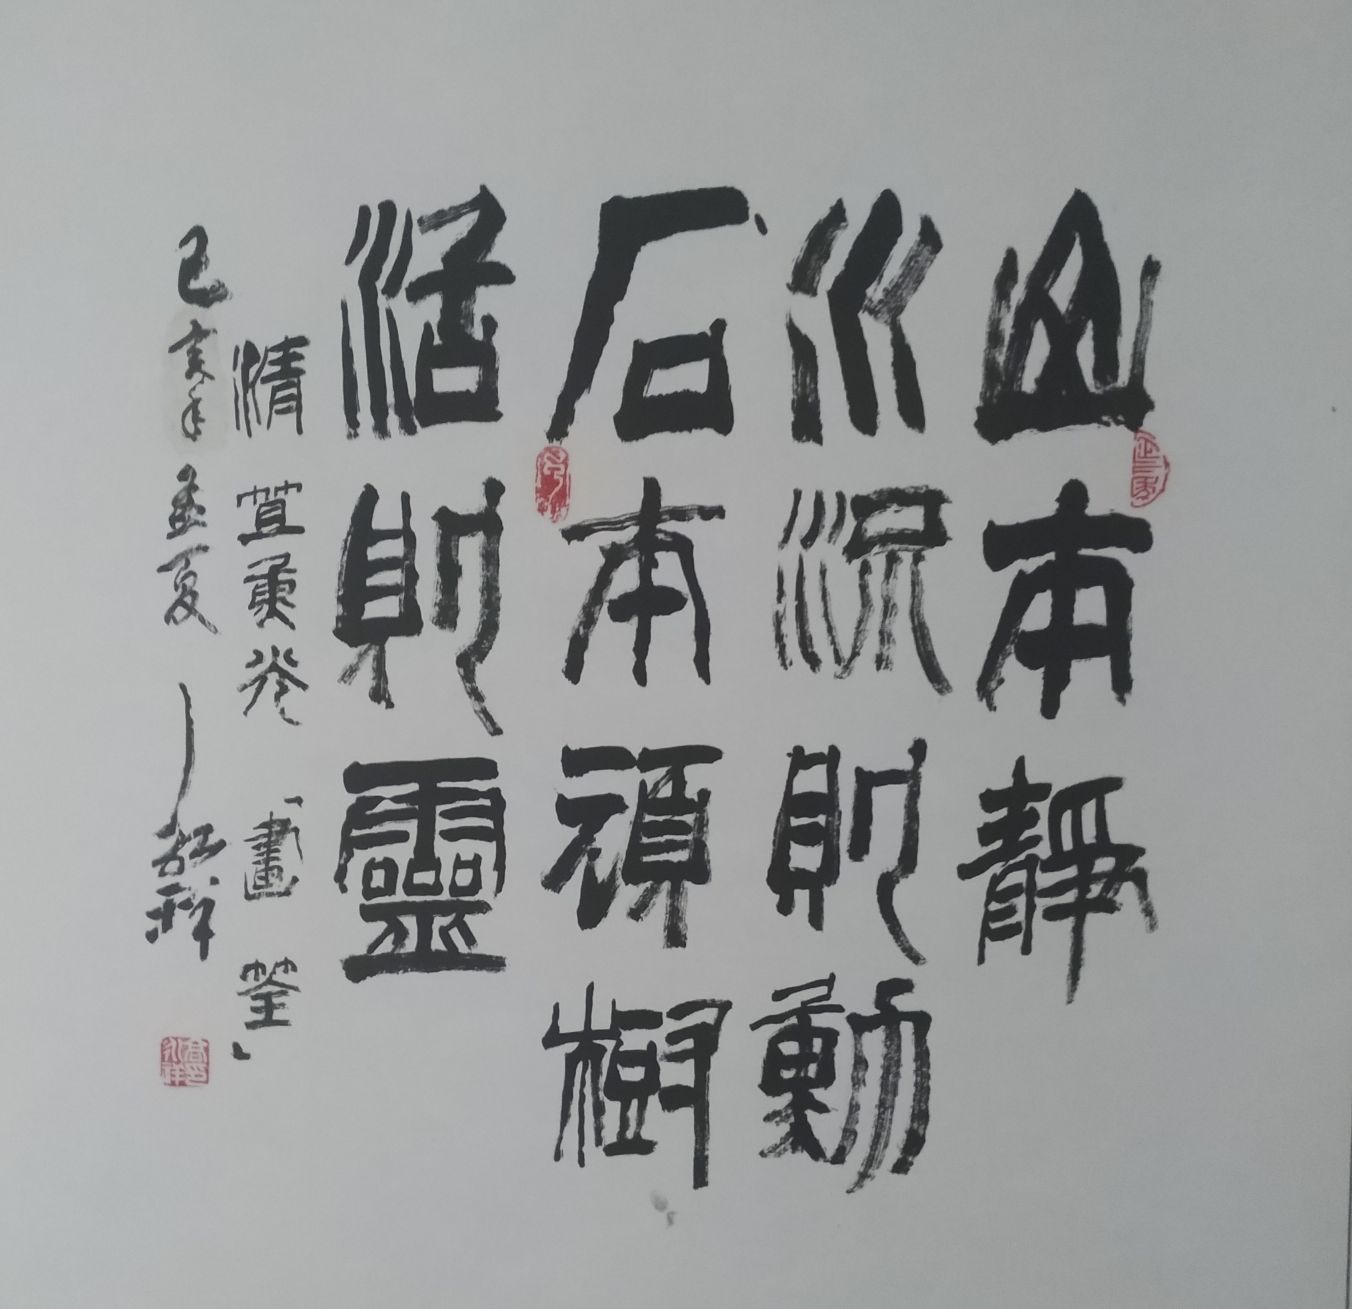 山本靜
水流則動
石本頑樹
活則靈
清 笪重光「畫筌」
己亥年孟夏